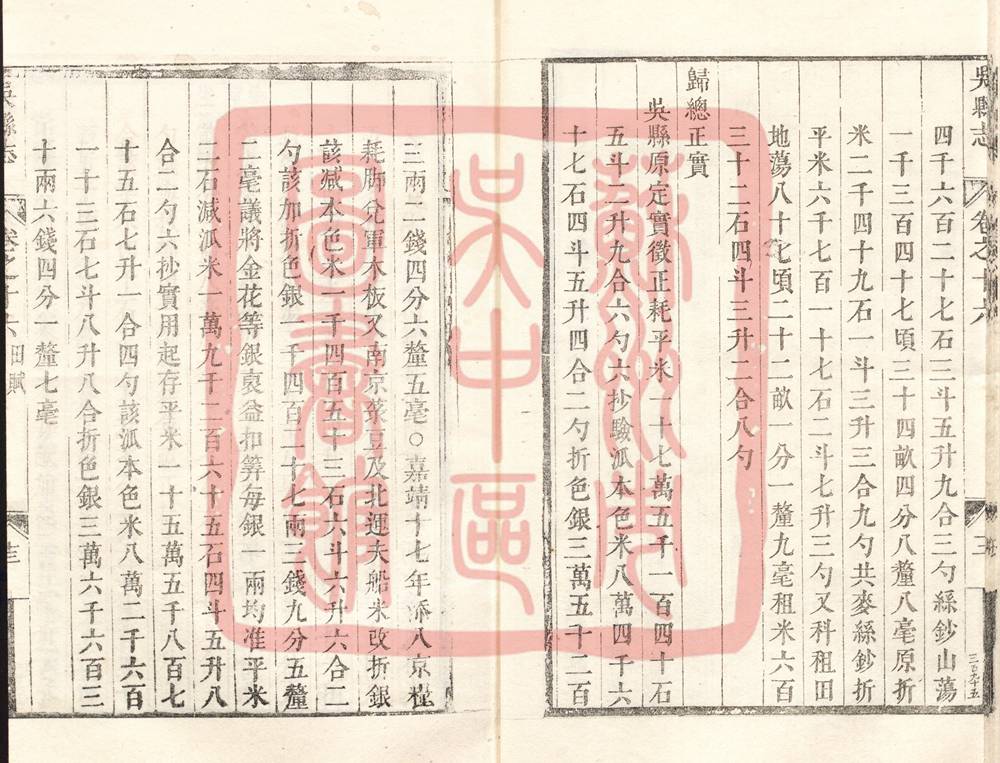 吳縣志
卷之十六
三
三百九十五
四千六百二十七石三斗五升九合三勺絲鈔山蕩
一千三百四十七頃三十四畝四分八釐八毫原折
米二千四十九石一斗三升三合九勺共麥絲鈔折
平米六千七百一十七石二斗七升三勺又科租田
地蕩八十七頃二十二畝一分一釐九毫租米六百
三十二石四斗三升二合八勺
歸總正實
吳縣原定實徵正耗平米一十七萬五千一百四十石
五斗二升九合六勺六抄驗派本色米八萬四千六
十七石四斗五升四合二勺折色銀三萬五千二百
三兩二錢四分六釐五毫○嘉靖十七年添入京糧
耗脚兌軍木板又南京菉豆及北運夫船米改折銀
該減本色米一千四百五十三石六斗六升六合二
勺該加折色銀一千四百二十七兩三錢九分五釐
二毫議將金花等銀裒益扣筭每銀一兩均准平米
二石減派米一萬九千二百六十五石四斗五升八
合二勺六抄實用起存平米一十五萬五千八百七
十五石七升一合四勺該派本色米八萬二千六百
一十三石七斗八升八合折色銀三萬六千六百三
十兩六錢四分一釐七毫
吳縣志
卷之十六
田賦
蘇州市
吳中區
圖書館